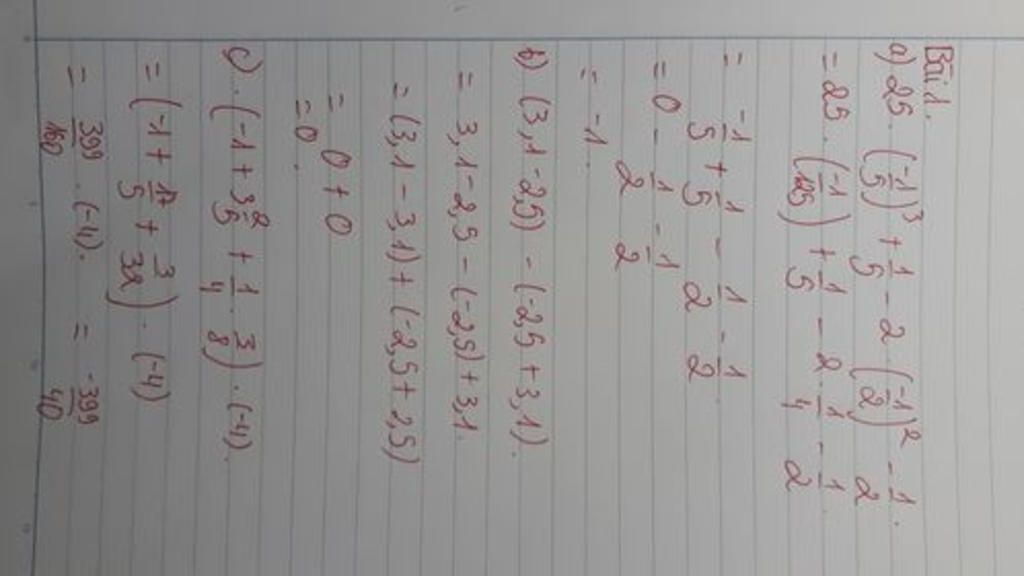 Bài 1.
a) 25. (-1/5)³ + 1/5 - 2. (-1/2)² - 1/2.
= 25. (-1/125) + 1/5 - 2. 1/4 - 1/2
= -1/5 + 1/5 - 1/2 - 1/2.
= 0 - 1/2 - 1/2
= -1.
b) (3,1-2,5) - (-2,5 + 3,1).
= 3,1-2,5 - (-2,5)+3,1.
= (3,1 - 3,1) + (-2,5+ 2,5)
= 0 + 0
= 0.
c). (-1 + 3 2/5 + 1/4 . 3/8) . (-4).
= (-1 + 17/5 + 3/32). (-4)
= 399/160 . (-4). = -399/40